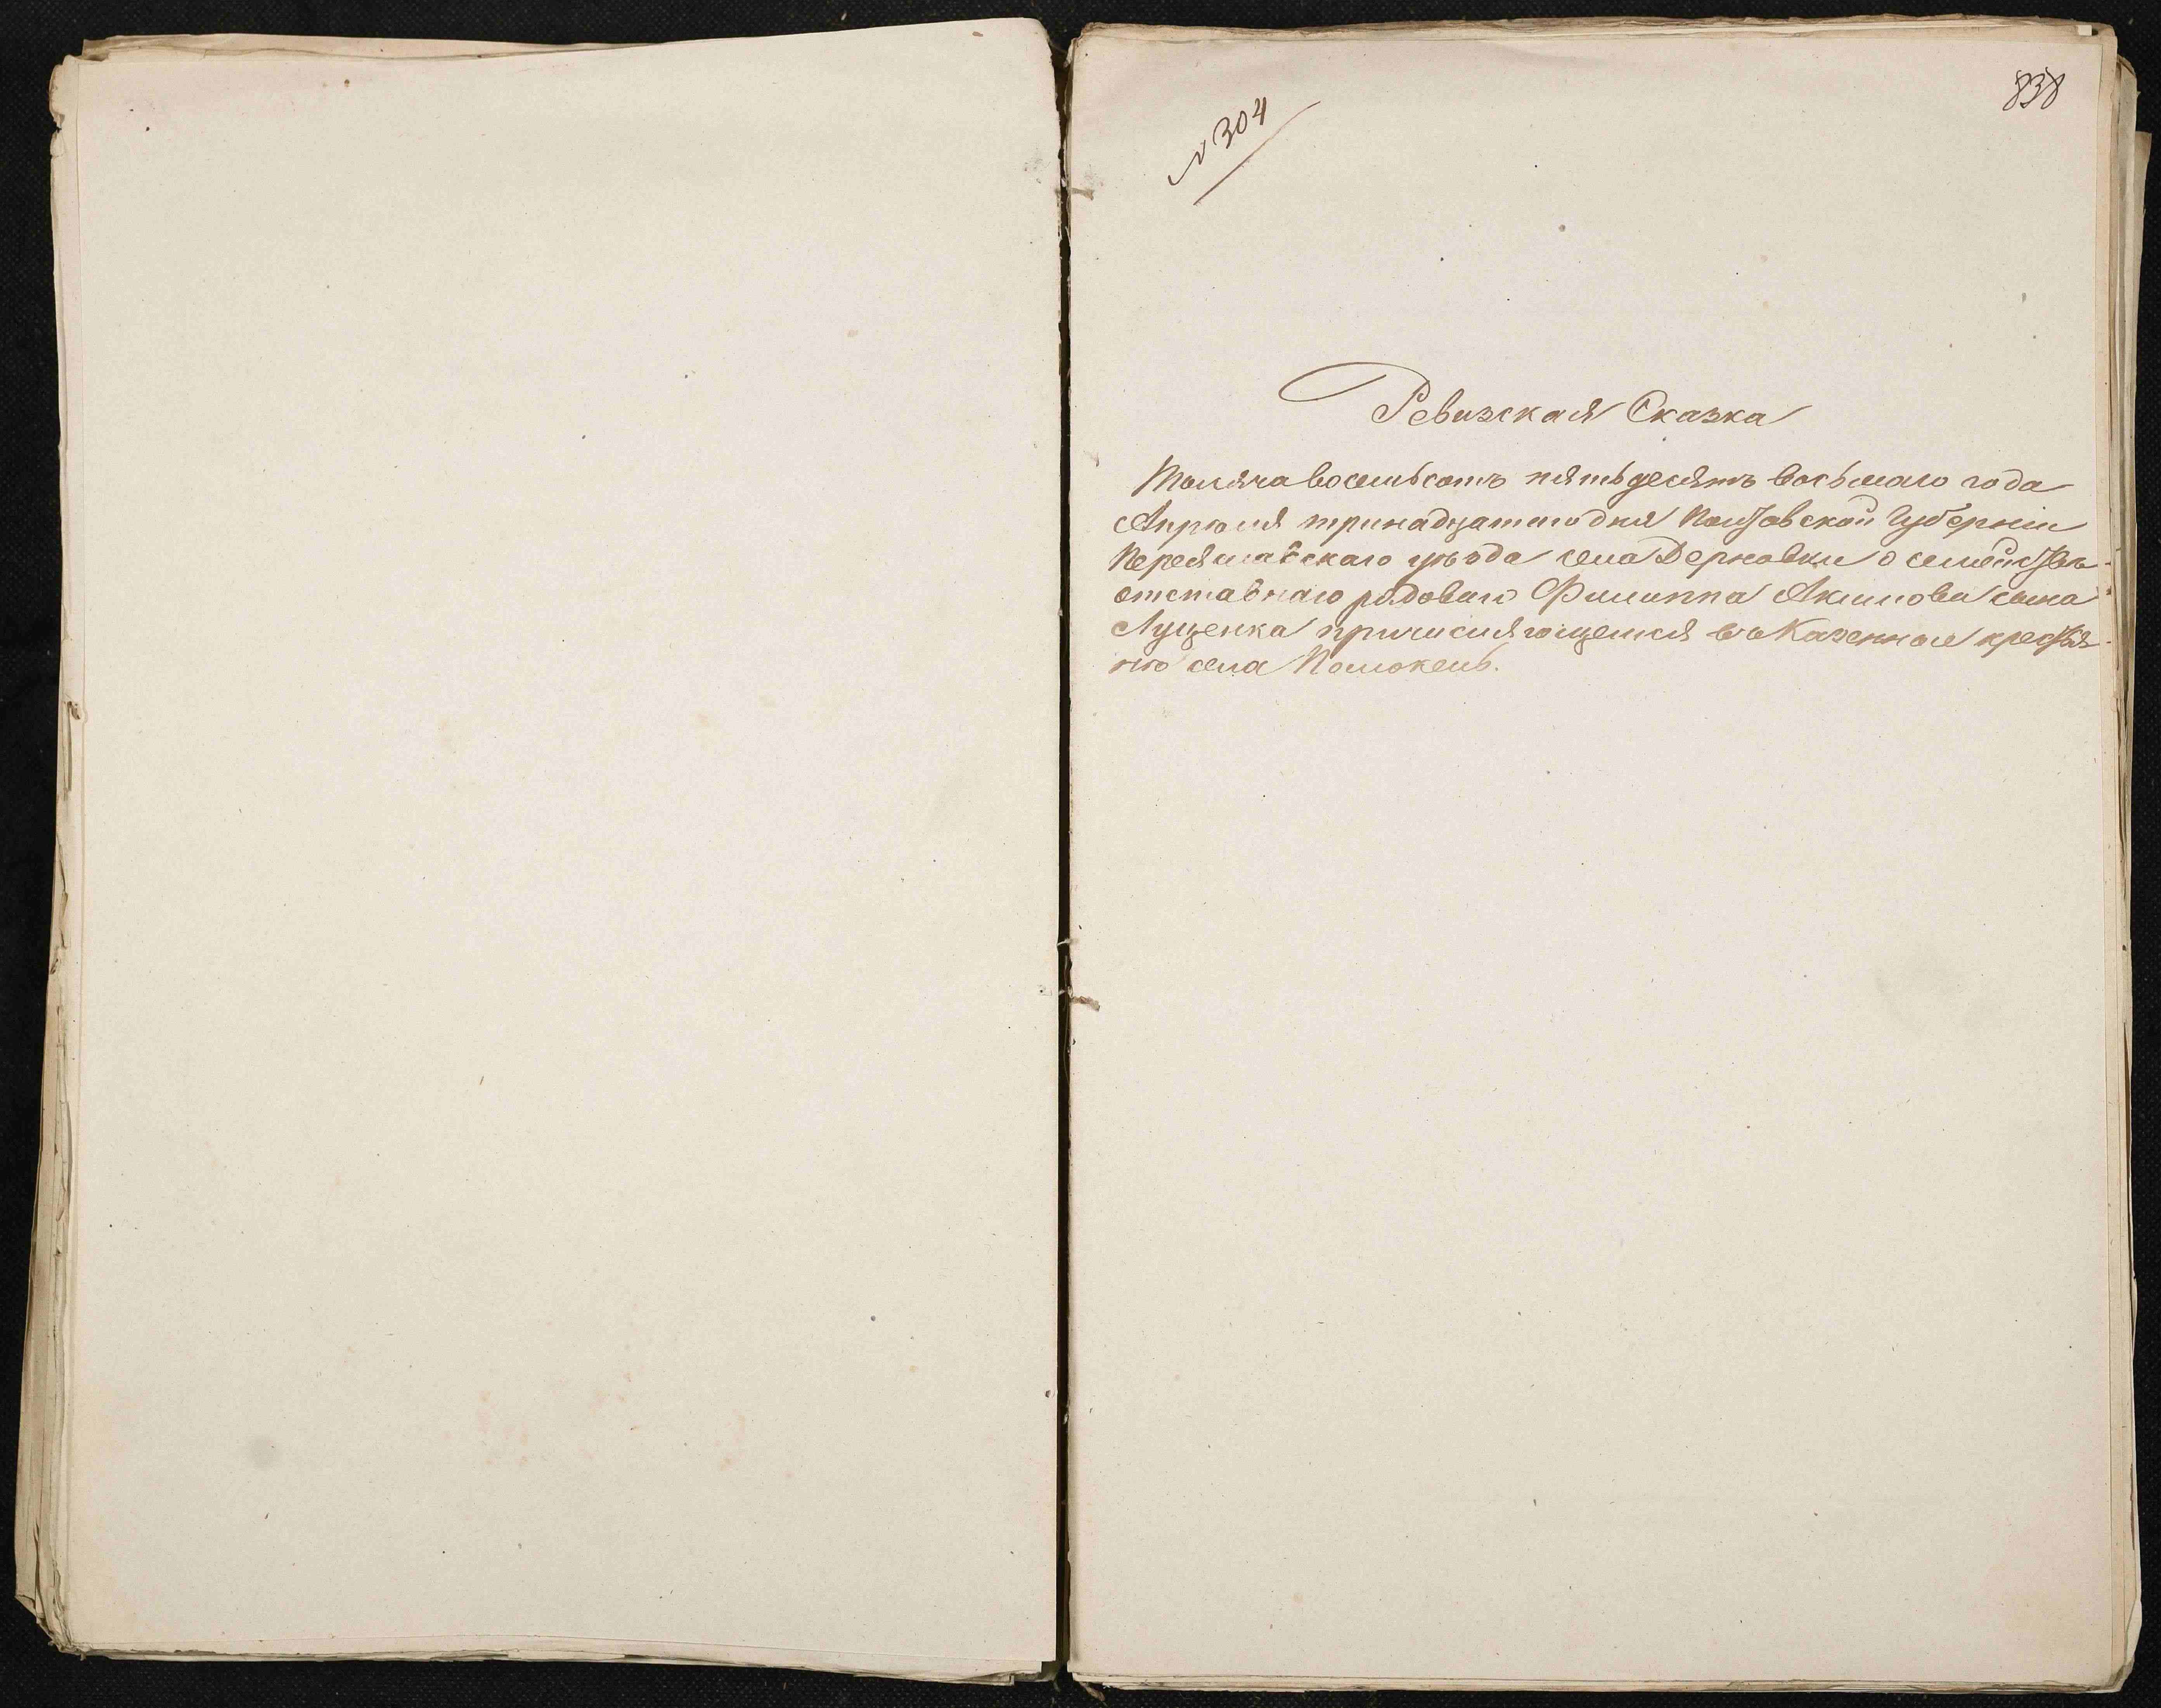 838
№ 304
Ревизская Сказка
Тысяча восемьсотъ пятьдесятъ восьмаго года
Апрѣля тринадцатого дня Полтавской Губерніи
Переяславскаго уѣзда села Дерновки о семействѣ
отставнаго рядоваго Филиппа Акимова сына
Луценка причисляющемся въ Казенное крестья-
не села Помоклей.